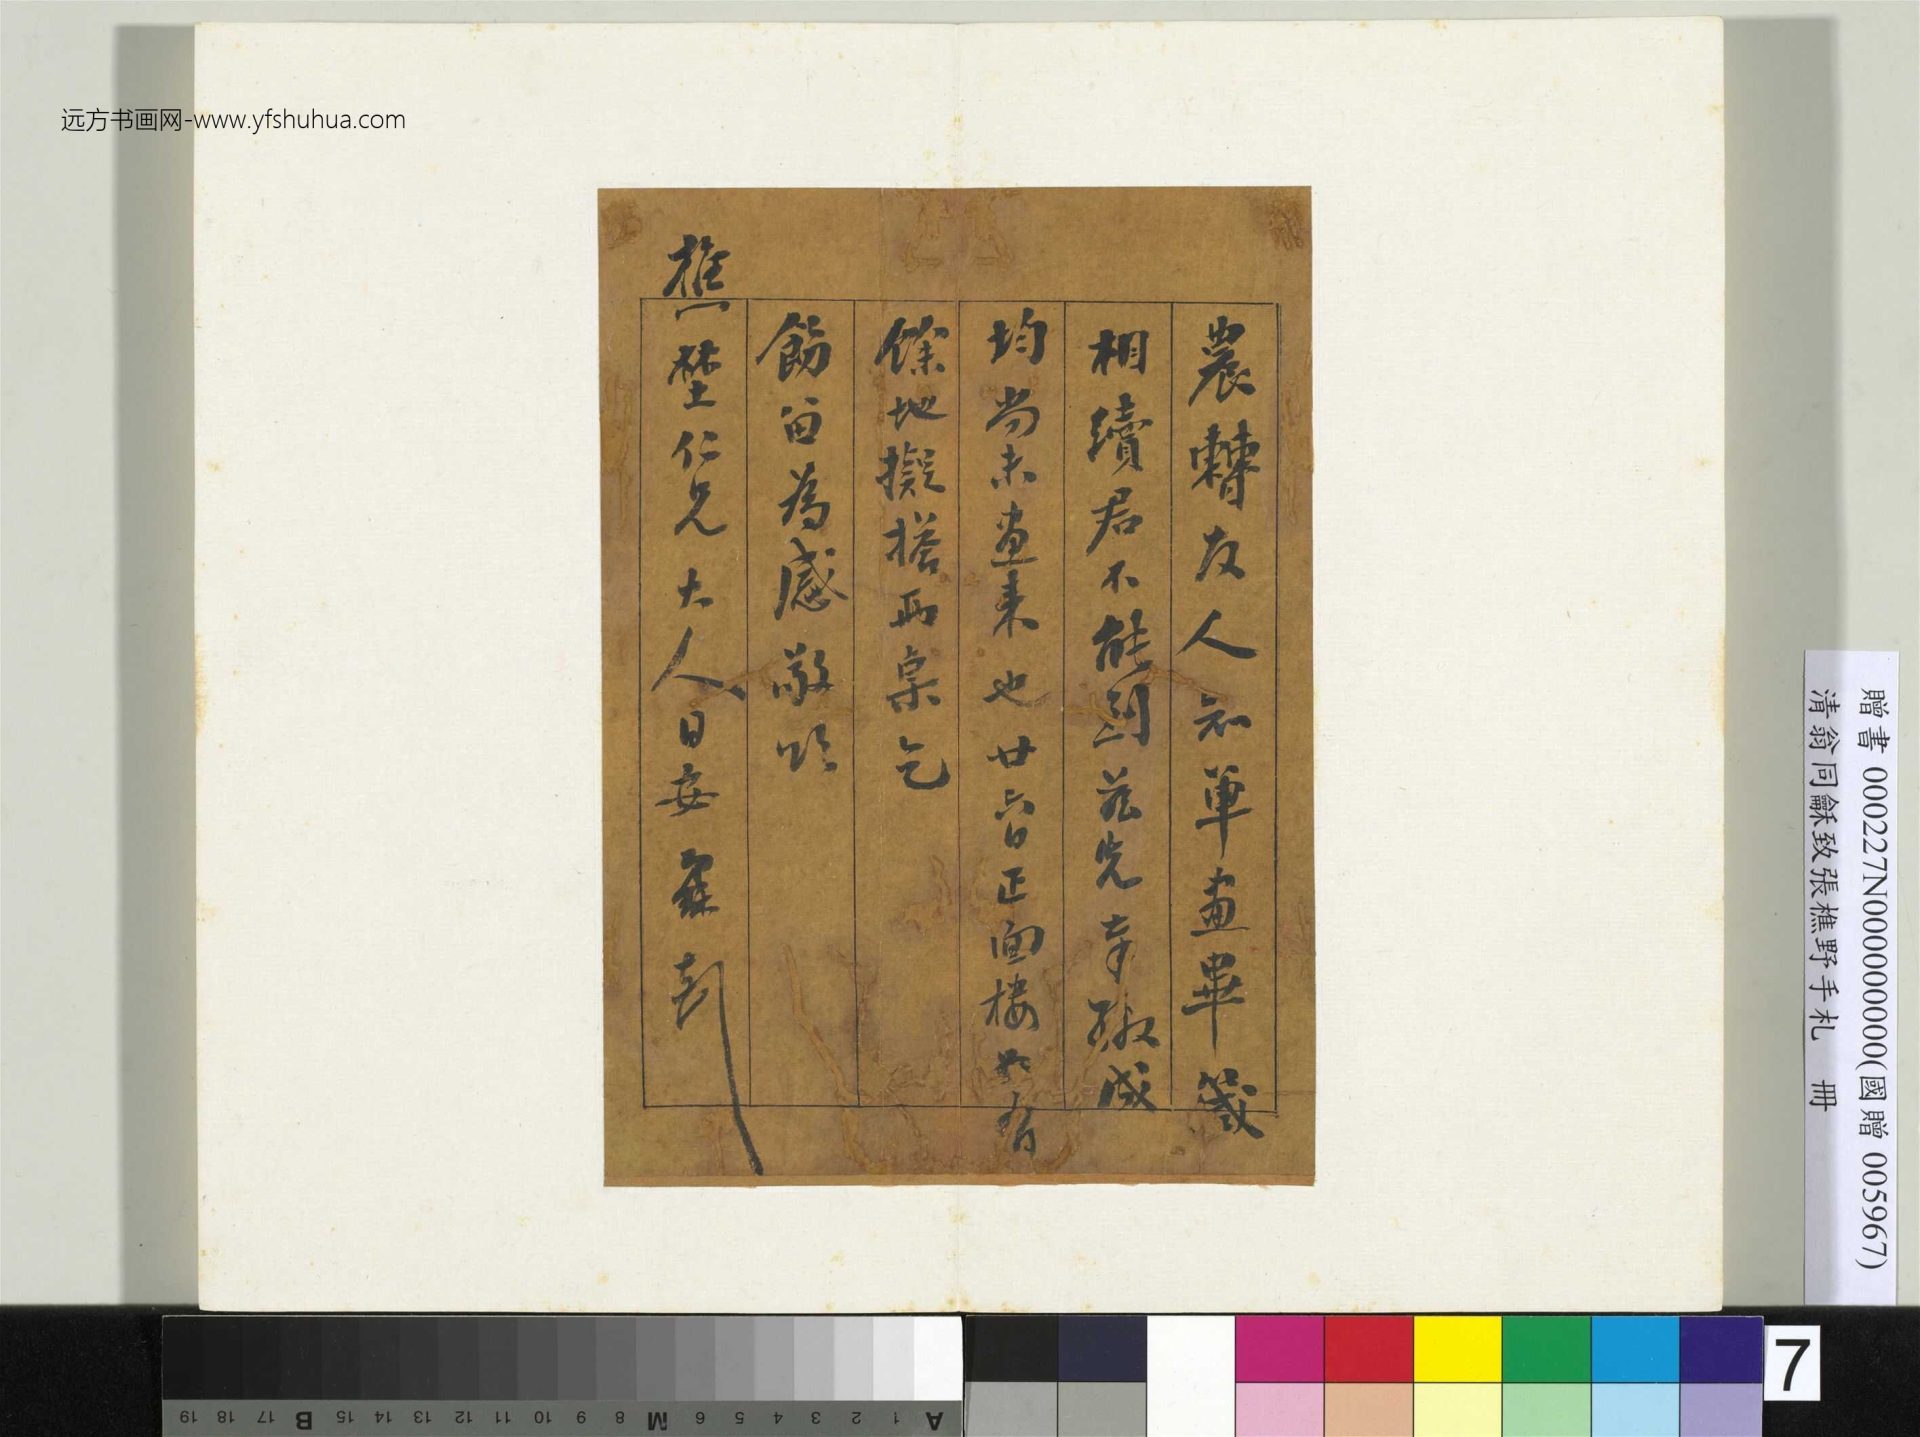 远方书画网-www.yfshuhua.com
農曹友人知單畫畢箋
相續君不能到茲先奉繳成
均尚未畫來也廿六日正面樓如有
餘地擬搭兩桌乞
飭留為感敬頌
樵埜仁兄大人日安
贈書 000227N000000000(國贈 005967)
清翁同龢致張樵野手札 冊
7
A 1 2 3 4 5 6 M 8 9 10 11 12 13 14 15 B 17 18 19